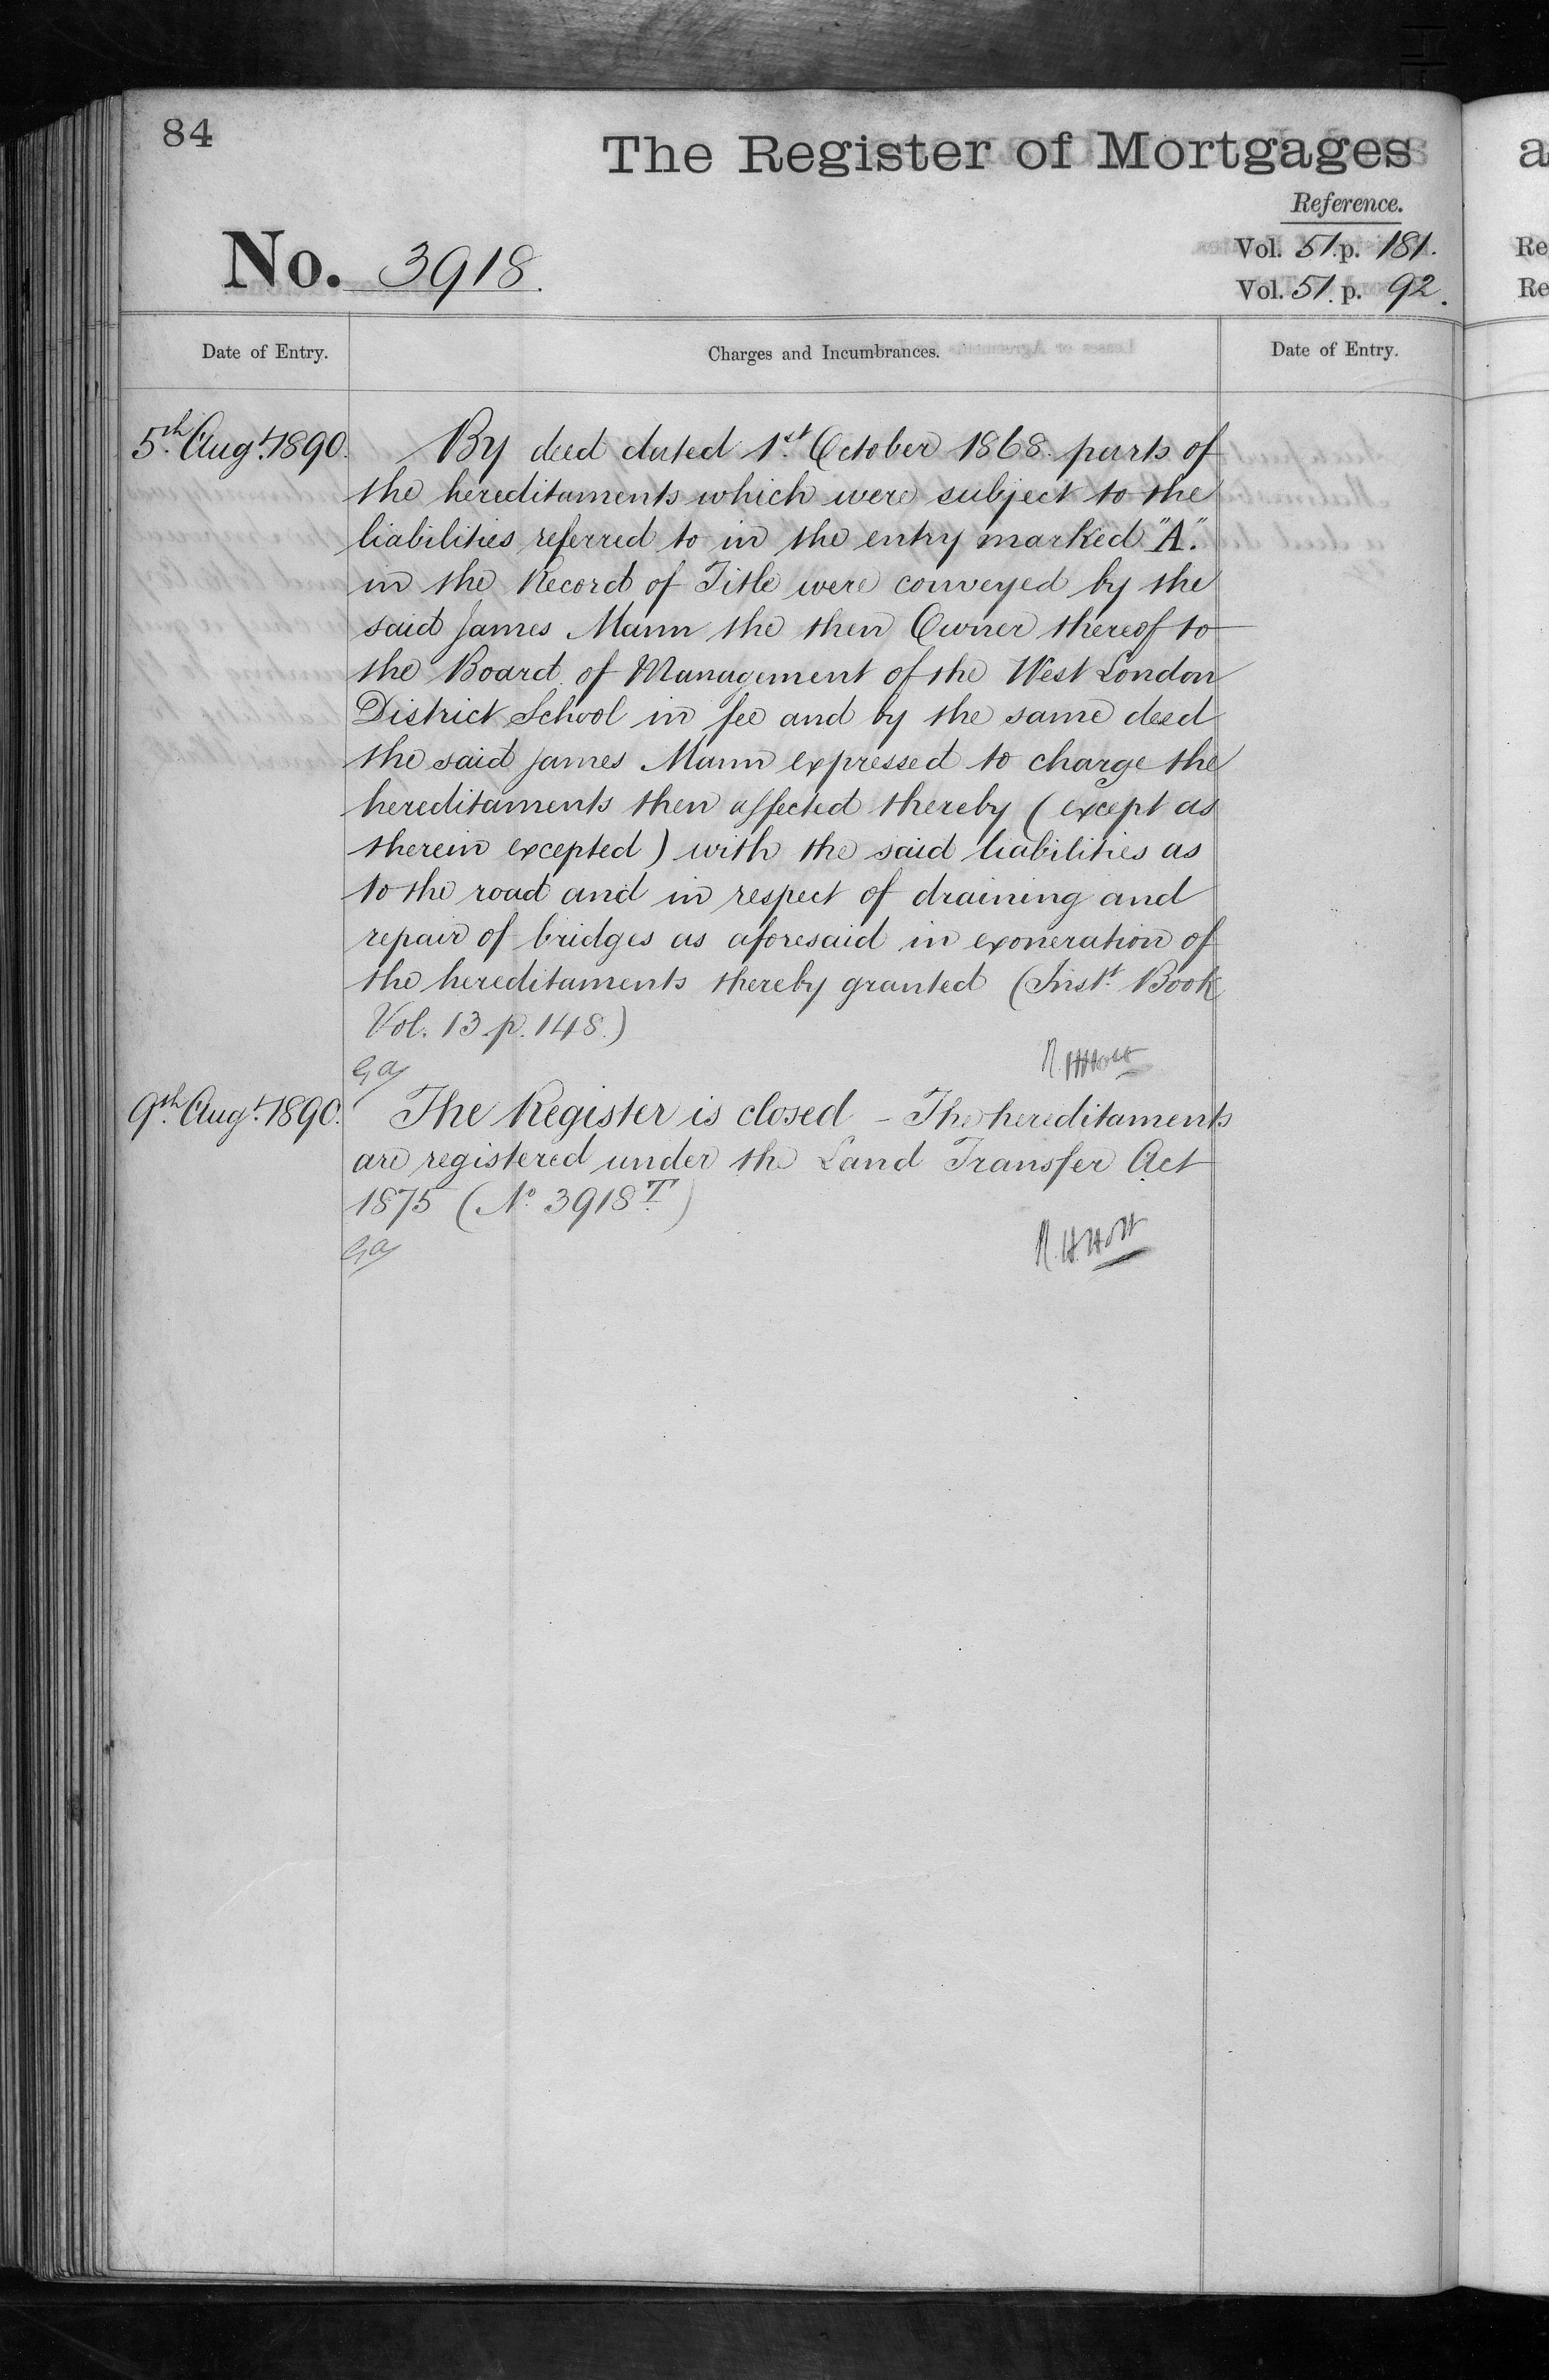 84
The Register of Mortgages
Reference.
No. 3918.
Vol. 51. p. 181.
Vol. 51. p. 92.
Date of Entry.
Charges and Incumbrances.
Date of Entry.
5th Augt. 1890.
By deed dated 1st October 1868 parts of
the hereditaments which were subject to the
liabilities referred to in the entry marked "A".
in the Record of Title were conveyed by the
said James Mann the then Owner thereof to
the Board of Management of the West London
District School in fee and by the same deed
the said James Mann expressed to charge the
hereditaments then affected thereby (except as
therein excepted) with the said liabilities as
to the road and in respect of draining and
repair of bridges as aforesaid in exoneration of
the hereditaments thereby granted (Inst. Book
Vol. 13 p. 148.)
R. H. Holt
9th Augt. 1890.
The Register is closed - The hereditaments
are registered under the Land Transfer Act
1875 (No. 3918 T.)
R. H. Holt
a
Re
Re